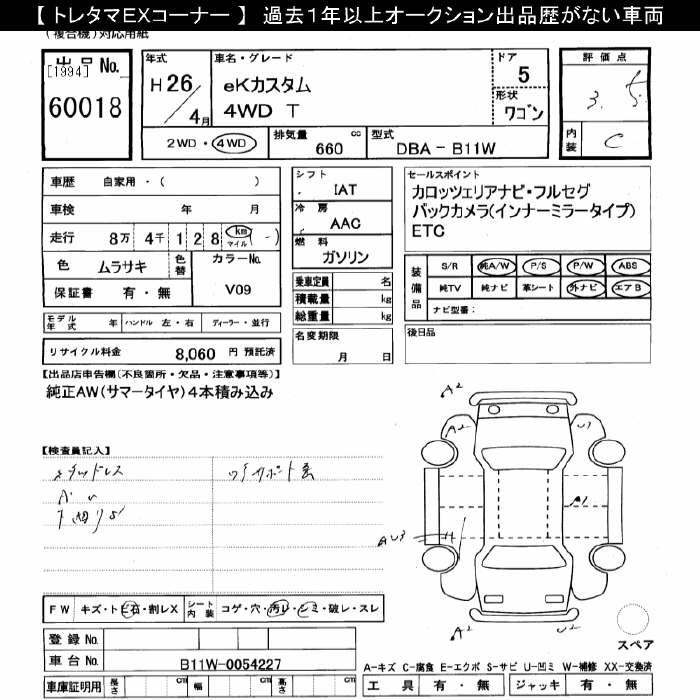 【 トレタマEXコーナー 】 過去１年以上オークション出品歴がない車両
(複合機)対応用紙
出品 No.
[1994]
60018
年式
H 26 / 4月
車名・グレード
eKカスタム
4WD T
ドア
5
形状
ワゴン
評価点
3.5
内装
C
2WD・4WD
排気量 660 cc
型式 DBA - B11W
車歴 自家用・( )
車検 年 月
走行 8万 4千 1 2 8 km マイル ( - )
色 ムラサキ
色替
カラーNo.
V09
保証書 有・無
モデル年式 年
ハンドル 左・右
ディーラー・並行
リサイクル料金 8,060 円 預託済
シフト
IAT
冷房
AAC
燃料
ガソリン
乗車定員 名
積載量 kg
総重量 kg
名変期限
月 日
セールスポイント
カロッツェリアナビ・フルセグ
バックカメラ(インナーミラータイプ)
ETC
装備品
S/R 純A/W P/S P/W ABS
純TV 純ナビ 革シート 外ナビ エアB
ナビ型番：
後日品
【出品店申告欄(不良箇所・欠品・注意事項等)】
純正AW(サマータイヤ)4本積み込み
【検査員記入】
A2
A2
U1
A1
AU3
A2
U2
FW キズ・トビ石・割レX
シート内装 コゲ・穴・汚レ・シミ・破レ・スレ
登録 No.
車台 No. B11W-0054227
車庫証明用 長さ cm 幅 cm 高さ cm
スペア
A-キズ C-腐食 E-エクボ S-サビ U-凹ミ W-補修 XX-交換済
工具 有・無 ジャッキ 有・無